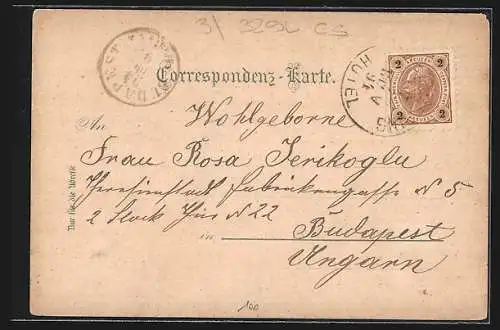 3/ 329L CS
BUDAPEST
HOTEL
2 2
2 2
Correspondenz-Karte.
An
Wohlgeborne
Frau Rosa Jerikoglu
Theresienstadt Fabrikengasse N 5
2 Stock Thür N 22
in Budapest
Ungarn
Nur für die Adresse
100